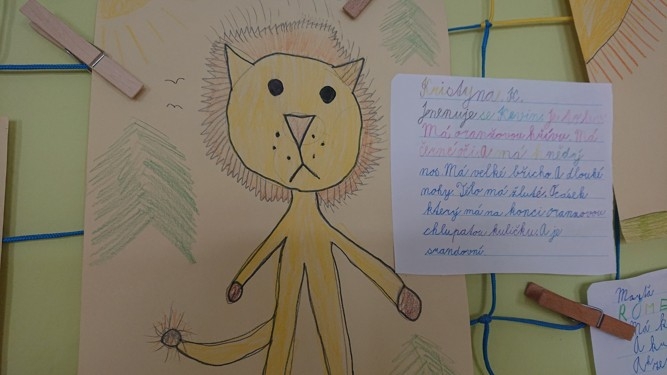 Kristyna K.
Jmenuje se Kevin
Má oranžovou hřívu. Má
černé oči. A má hnědej
nos. Má velké břicho. A dlouhé
nohy. Tělo má žluté. Ocásek
který má na konci oranžovou
chlupatou kuličku. A je
srandovní.
Má k